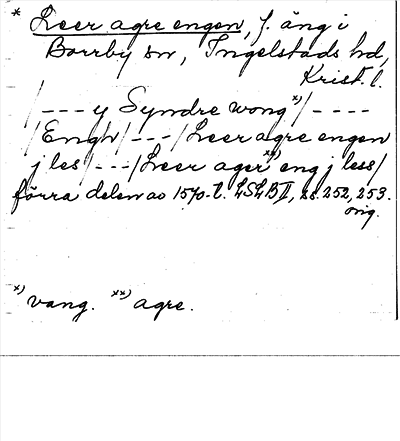 * Leer agre engen, f. äng i
Borrby sn, Ingelstads hd,
Krist. l.
/--- y Syndre wong x)/----
/Engh/---/Leer agre engen
j les/---/Leer ager xx) eng j less/
förra delen av 1570-t. LSLB II, s. 252, 253.
orig.
x) vang. xx) agre.